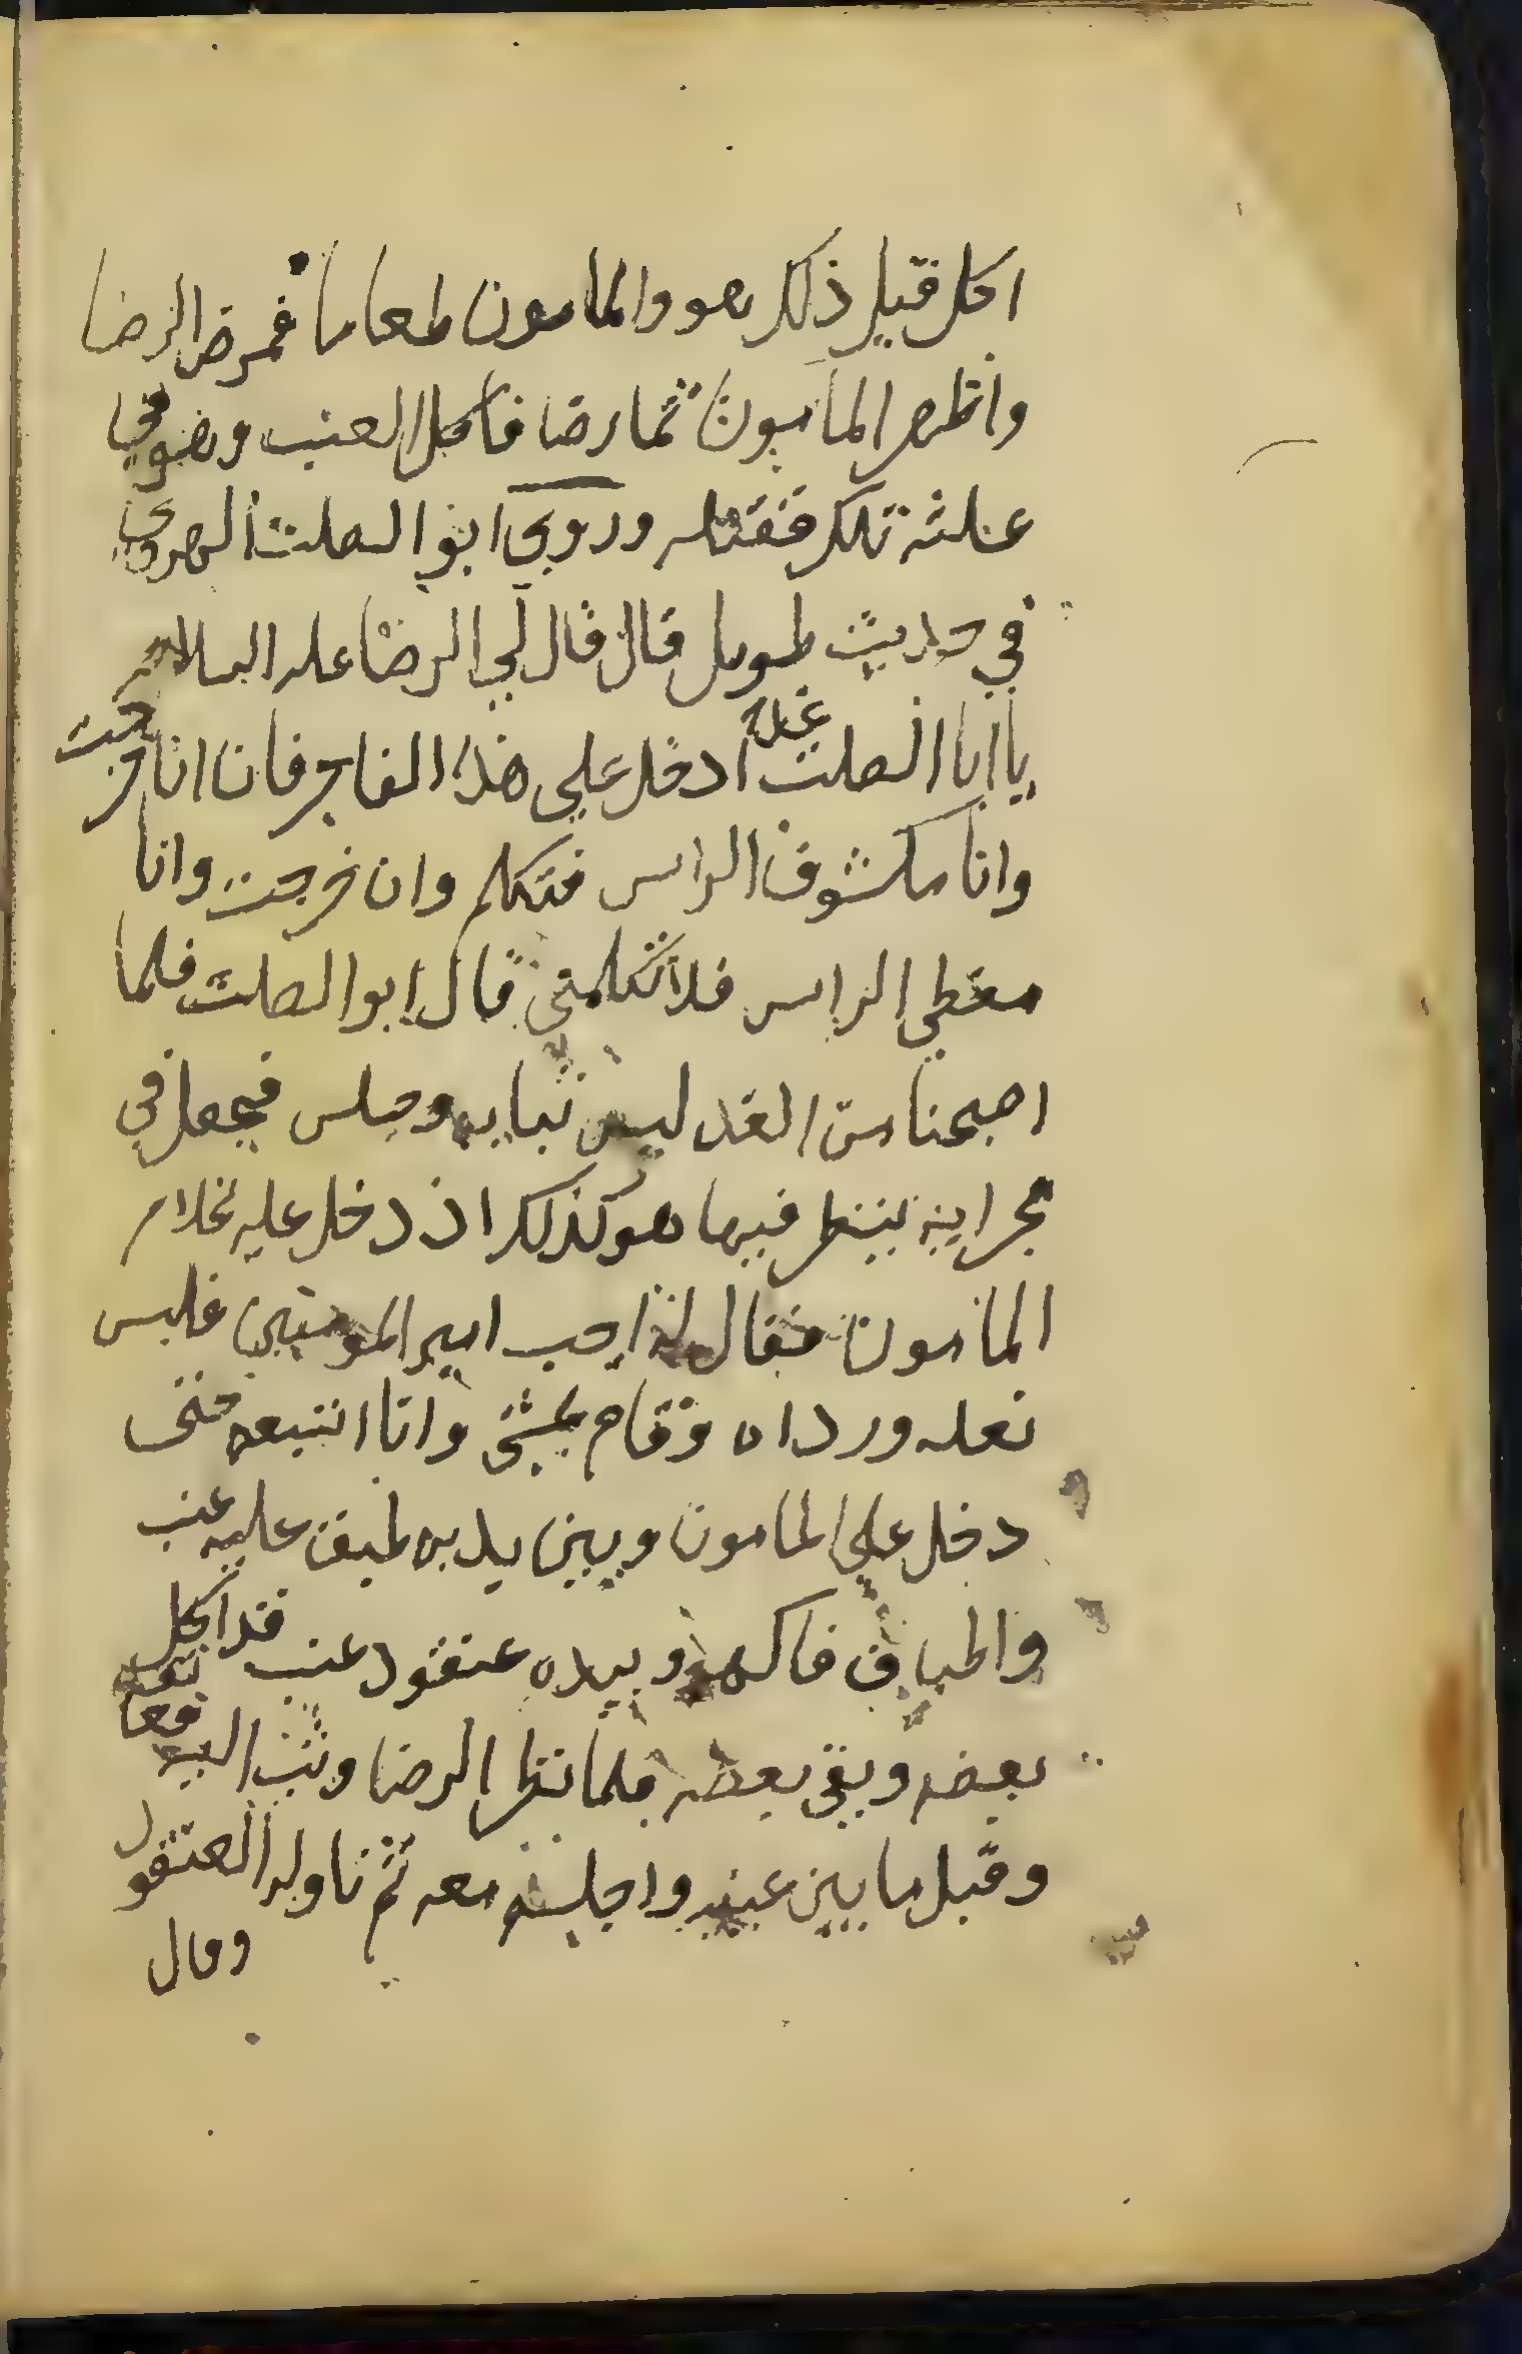 اكل قبل ذلك هو والمامون طعاما فمرض الرضا
واظهر المامون تمارضا فاكل العنب وهو في
علته تلك فقتله وروي ابو الصلت الهروي
في حديث طويل قال قال لي الرضا عله السلام
يا ابا الصلت غدا ادخل علي هذا الفاجر فان انا خرجت
وانا مكشوف الراس فتكلم وان خرجت وانا
مغطي الراس فلا تكلمني قال ابو الصلت فلما
اصبحنا من الغد لبس ثيابه وجلس فجعل في
محرابه ينتظر فبينما هو كذلك اذ دخل عليه غلام
المامون فقال له اجب امير المومنين فلبس
نعله ورداه وقام يمشي وانا اتبعه حتى
دخل علي المامون وبين يديه طبق عليه عنب
واطباق فاكهه وبيده عنقود عنب قد اكل
بعضه وبقي بعضه فلما نظر الرضا وثب اليه
وقبل ما بين عينيه واجلسه معه ثم ناوله العنقود
وقال